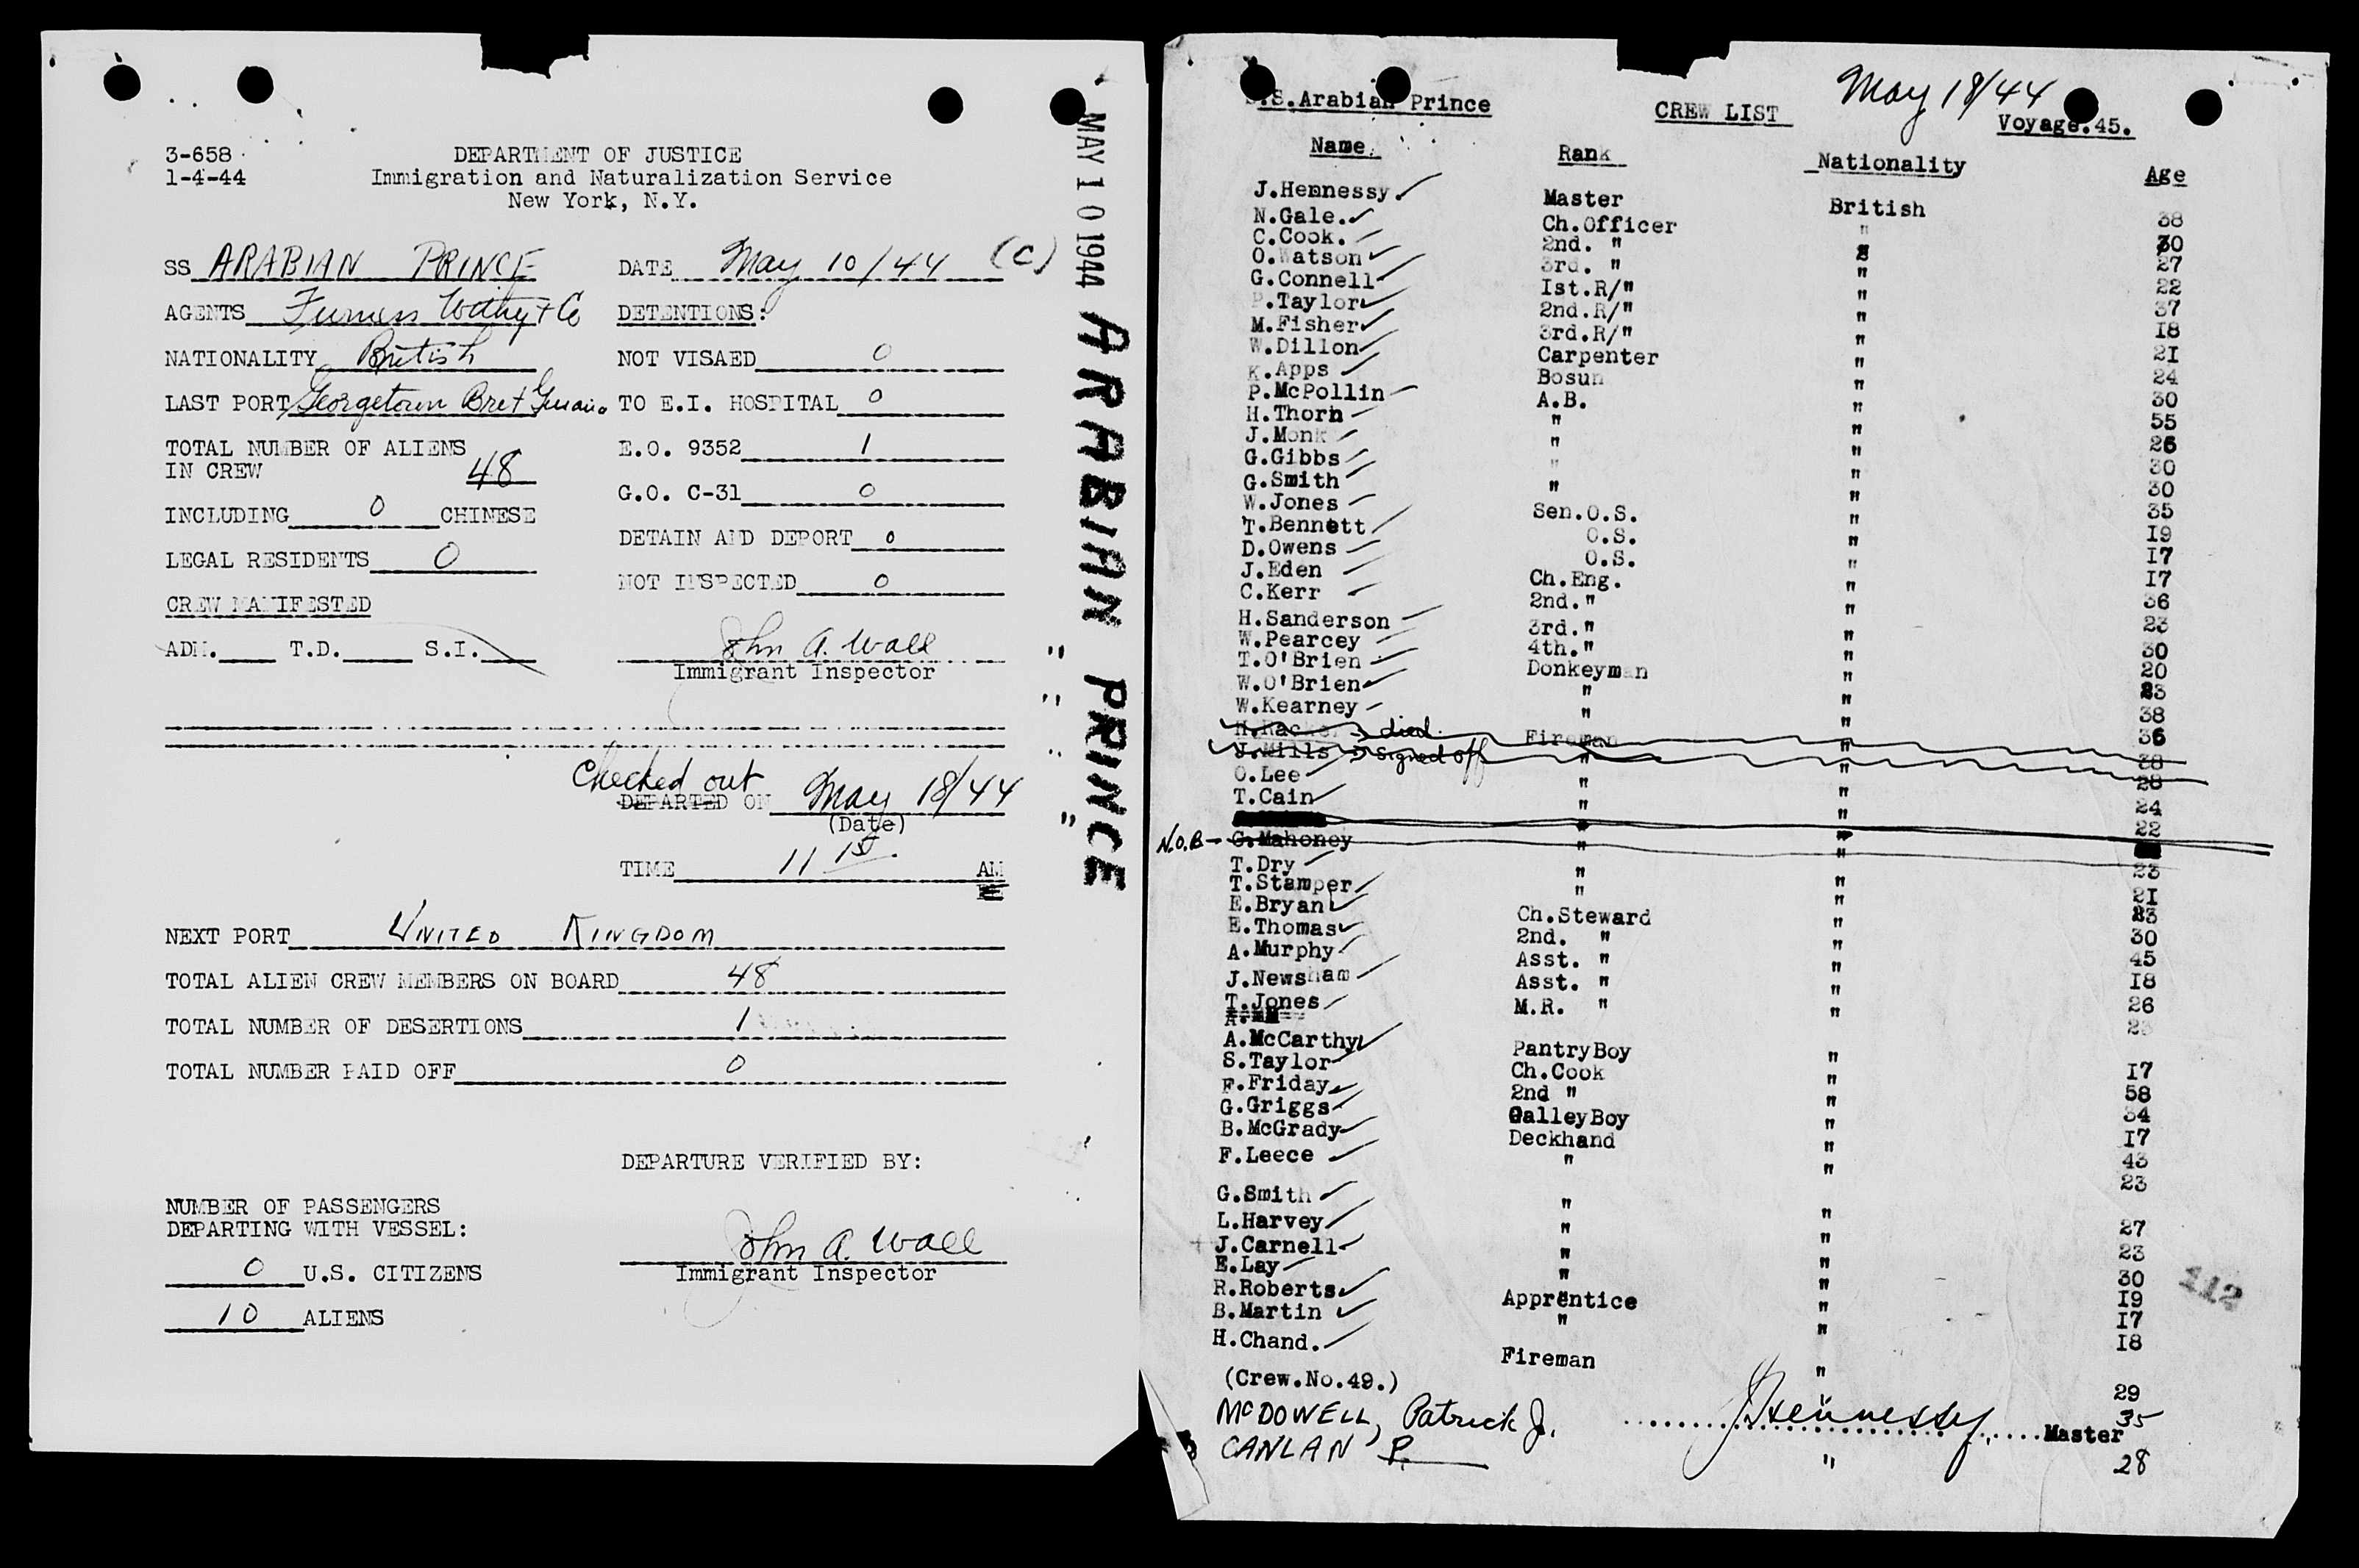 3-658
1-4-44
DEPARTMENT OF JUSTICE
Immigration and Naturalization Service
New York, N.Y.
SS ARABIAN PRINCE DATE May 10/44 (C)
AGENTS Furness Withy + Co DETENTIONS:
NATIONALITY British NOT VISAED 0
LAST PORT Georgetown Brit Guiana TO E.I. HOSPITAL 0
TOTAL NUMBER OF ALIENS
IN CREW 48
E.O. 9352 1
G.O. C-31 0
INCLUDING 0 CHINESE
DETAIN AND DEPORT 0
LEGAL RESIDENTS 0
NOT INSPECTED 0
CREW MANIFESTED
ADM. T.D. S.I.
John A. Wall
Immigrant Inspector
Checked out
DEPARTED ON May 18/44
(Date)
TIME 11 15 AM
NEXT PORT UNITED KINGDOM
TOTAL ALIEN CREW MEMBERS ON BOARD 48
TOTAL NUMBER OF DESERTIONS 1
TOTAL NUMBER PAID OFF 0
DEPARTURE VERIFIED BY:
NUMBER OF PASSENGERS
DEPARTING WITH VESSEL:
0 U.S. CITIZENS
10 ALIENS
John A. Wall
Immigrant Inspector
MAY 10 1944 ARABIAN PRINCE
S.S.Arabian Prince CREW LIST May 18/44 Voyage.45.
Name Rank Nationality Age
J.Hennessy. Master British 38
N.Gale. Ch.Officer " 30
C.Cook. 2nd. " " 27
O.Watson 3rd. " " 22
G.Connell Ist.R/" " 37
P.Taylor 2nd.R/" " I8
M.Fisher 3rd.R/" " 2I
W.Dillon Carpenter " 24
K.Apps Bosun " 30
P.McPollin A.B. " 55
H.Thorn " " 26
J.Monk " " 30
G.Gibbs " " 30
G.Smith " " 35
W.Jones Sen.O.S. " I9
T.Bennett O.S. " I7
D.Owens O.S. " I7
J.Eden Ch.Eng. " 36
C.Kerr 2nd." " 23
H.Sanderson 3rd." " 30
W.Pearcey 4th." " 20
T.O'Brien Donkeyman " 23
W.O'Brien " " 38
W.Kearney " " 36
died Fireman " 38
J.Mills Signed off " " 28
O.Lee " " 24
T.Cain " " 22
N.O.B - G.Mahoney " " 23
T.Dry " " 2I
T.Stamper " " 23
E.Bryan Ch.Steward " 30
E.Thomas 2nd. " " 45
A.Murphy Asst. " " I8
J.Newsham Asst. " " 26
T.Jones M.R. " "
A.McCarthy PantryBoy " I7
S.Taylor Ch.Cook " 58
F.Friday 2nd " " 34
G.Griggs GalleyBoy " I7
B.McGrady Deckhand " 43
F.Leece " " 23
G.Smith " " 27
L.Harvey " " 23
J.Carnell " " 30
E.Lay " " I9
R.Roberts Apprentice " I7
B.Martin " " I8
H.Chand. Fireman " 29
(Crew.No.49.)
McDOWELL, Patrick J. " 35
J Hennessy. Master
CANLAN P. " 28
112